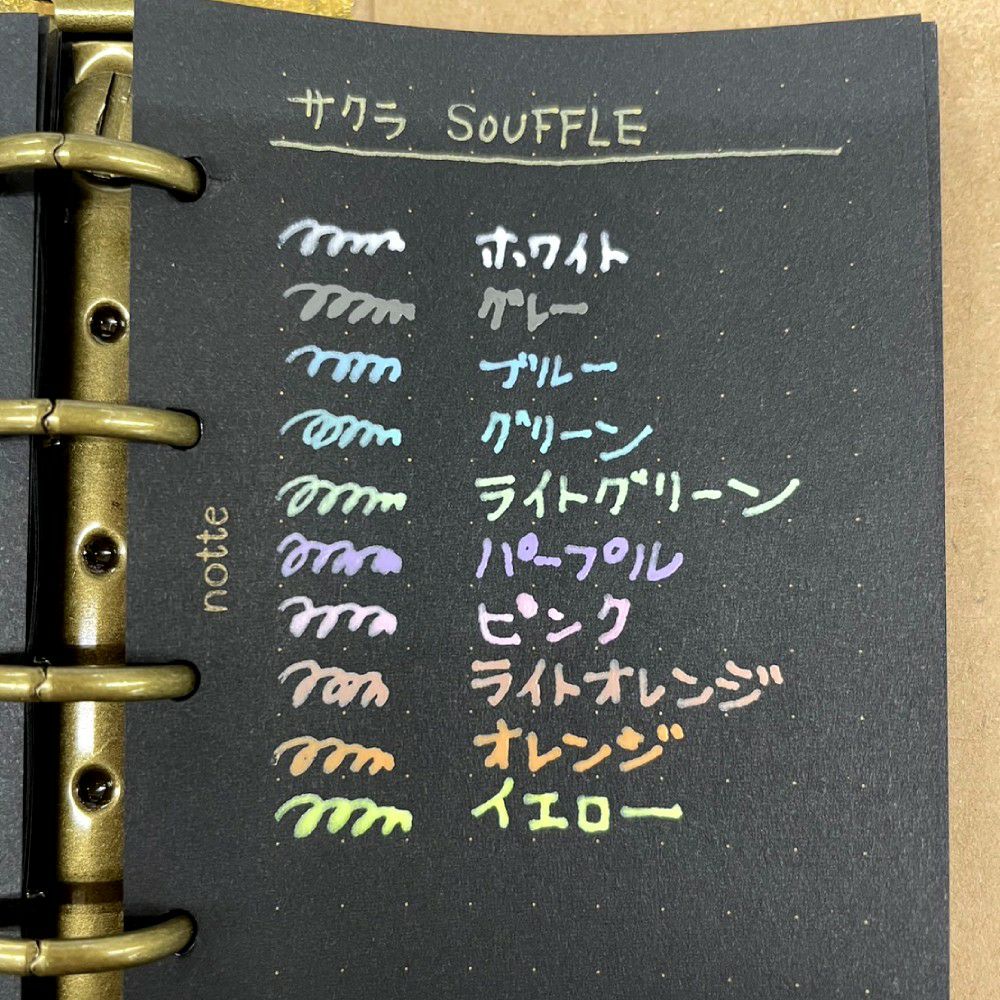 サクラ SOUFFLE
ホワイト
グレー
ブルー
グリーン
ライトグリーン
パープル
ピンク
ライトオレンジ
オレンジ
イエロー
notte